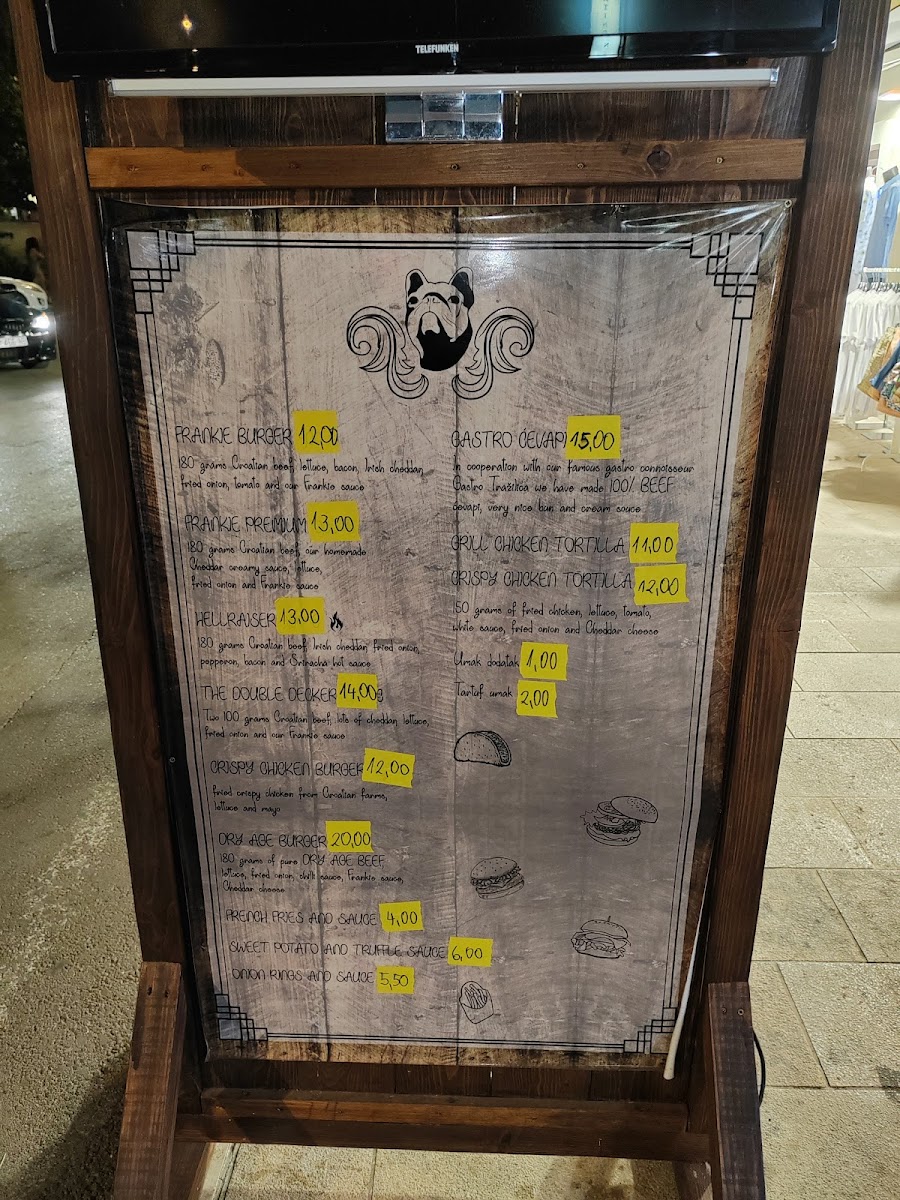 TELEFUNKEN
FRANKIE BURGER 12,00
180 grams Croatian beef, lettuce, bacon, Irish cheddar,
fried onion, tomato and our Frankie sauce
FRANKIE PREMIUM 13,00
180 grams Croatian beef, our homemade
Cheddar creamy sauce, lettuce,
fried onion and Frankie sauce
HELLRAISER 13,00
180 grams Croatian beef, Irish cheddar, fried onion,
pepperon, bacon and Sriracha hot sauce
THE DOUBLE DECKER 14,00
Two 100 grams Croatian beef, lots of cheddar, lettuce,
fried onion and our Frankie sauce
CRISPY CHICKEN BURGER 12,00
fried crispy chicken from Croatian farms,
lettuce and mayo
DRY AGE BURGER 20,00
180 grams of pure DRY AGE BEEF,
lettuce, fried onion, chilli sauce, Frankie sauce,
Cheddar cheese
FRENCH FRIES AND SAUCE 4,00
SWEET POTATO AND TRUFFLE SAUCE 6,00
ONION RINGS AND SAUCE 5,50
GASTRO ĆEVAPI 15,00
In cooperation with our famous gastro connoisseur
Gastro Tražilica we have made 100% BEEF
ćevapi, very nice bun and cream sauce
GRILL CHICKEN TORTILLA 11,00
CRISPY CHICKEN TORTILLA 12,00
150 grams of fried chicken, lettuce, tomato,
white sauce, fried onion and Cheddar cheese
Umak dodatak 1,00
Tartuf umak 2,00